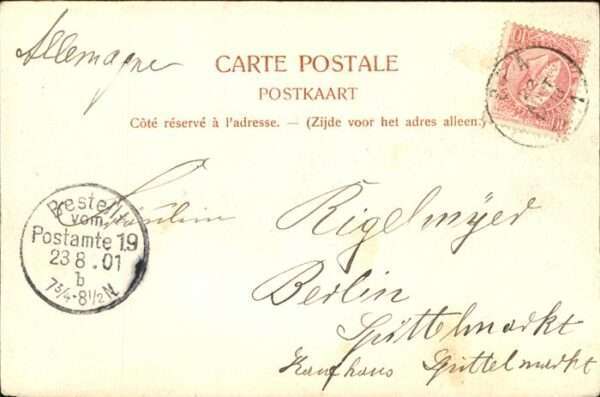 Allemagne
CARTE POSTALE
POSTKAART
Côté réservé à l'adresse. — (Zijde voor het adres alleen.)
10
Bestellt
vom
Postamte 19
23 8 . 01
b
7 3/4 - 8 1/2 N
Fräulein Rigelmyer
Berlin
Spittelmarkt
Kaufhaus Spittelmarkt